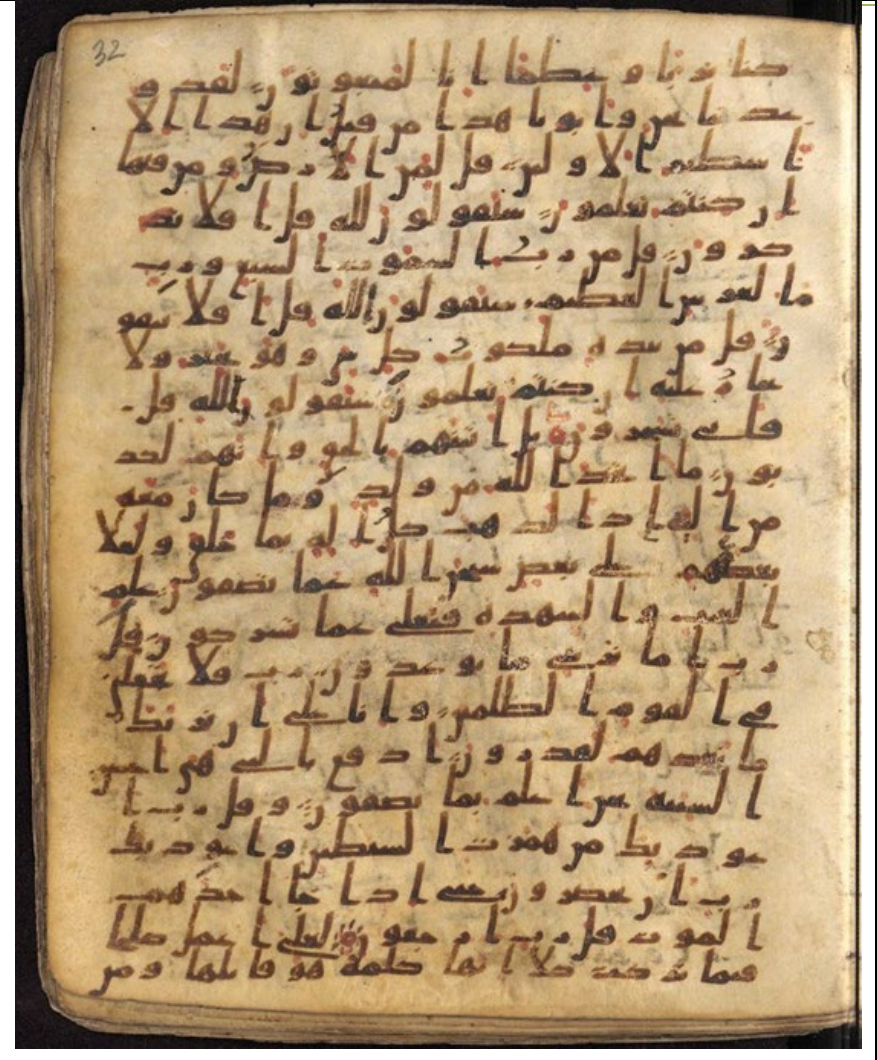 32
كنا تربا و عظما ا نا لمبعوثون لقد و
عد نا نحن و ا با ونا هذا من قبل ا ن هذا ا لا
ا سطير ا لا و لين قل لمن ا لا رض و من فيها
ا ن كنتم تعلمون سيقولون لله قل ا فلا تذ
كرون قل من رب ا لسموت ا لسبع و رب
ا لعرش ا لعظيم سيقولون الله قل ا فلا تتقو
ن قل من بيده ملكوت كل شى و هو يجير ولا
يجا ر عليه ا ن كنتم تعلمون سيقولون الله قل
فانى تسحرون بل ا تينهم با لحق و ا نهم لكذ
بون ما ا تخذ ا لله من و لد و ما كان معه
من ا له ا ذا لذهب كل ا له بما خلق و لعلا
بعضهم على بعض سبحن ا لله عما يصفون علم
ا لغيب و ا لشهدة فتعلى عما يشركون قل
رب ا ما ترينى ما يوعدون رب فلا تجعلنى
فى ا لقوم ا لظلمين و ا نا على ا ن نريك
ما نعدهم لقدرون ا د فع با لتى هى ا حسن
ا لسيئة نحن ا علم بما يصفون و قل رب ا
عوذ بك من همزت ا لشيطين و ا عوذ بك
رب ا ن يحضرون حتى ا ذا جا ا حدهم
ا لموت قل رب ا رجعون لعلى ا عمل صلحا
فيما تركت كلا ا نها كلمة هو قا يلها و من